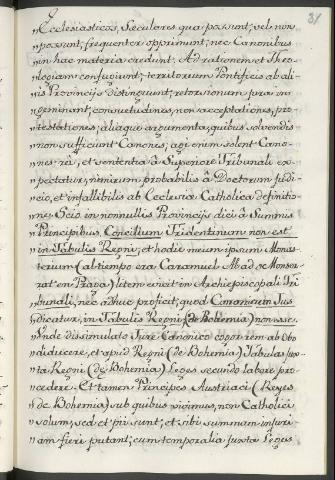 81
„Ecclesiasticos, Seculares qua possunt, vel non
„possunt, frequenter opprimunt, nec Canonibus
„in hac materia credunt. Ad rationem et Theo-
„logiam confugiunt; territorium Pontificis ab ali-
„is Provincijs distinguunt, retorsionum jura in-
„geminant, consuetudines, non acceptationes, pro-
„testationes, aliaque argumenta, quibus solvendis
„non sufficiunt Canones, agi enim solent Cano-
„nes rei, et sententia à Superiore Tribunali ex-
„pectatur, nimirum probabilis à Doctorum judi-
„cio, et infallibilis ab Ecclesia Catholica definitio-
„ne. Scio in nonnullis Provincijs dici à Summis
„Principibus, Concilium Tridentinum non est
„in Tabulis Regni; et hodie meum ipsum Monas-
„terium (al tiempo era Caramuel Abad de Monser-
„rat en Praga) litem vincit in Archiepiscopali Tri-
„bunali, nec adhuc proficit, quod Canonicum Jus
„dicatur, in Tabulis Regni (de Bohemia) non esse.
„Unde dissimulato Jure Canonico cogor rem ab Obo
„diducere, et apud Regni (de Bohemia) Tabulas jux-
„ta Regni (de Bohemia) Leges secundo labore pro-
„cedere. Et tamen Principes Austriaci (Reyes
„de Bohemia) sub quibus vivimus, non Catholici
„solum, sed et pii sunt, et sibi summam injuri-
„am fieri putant, cum temporalia juxta Leges